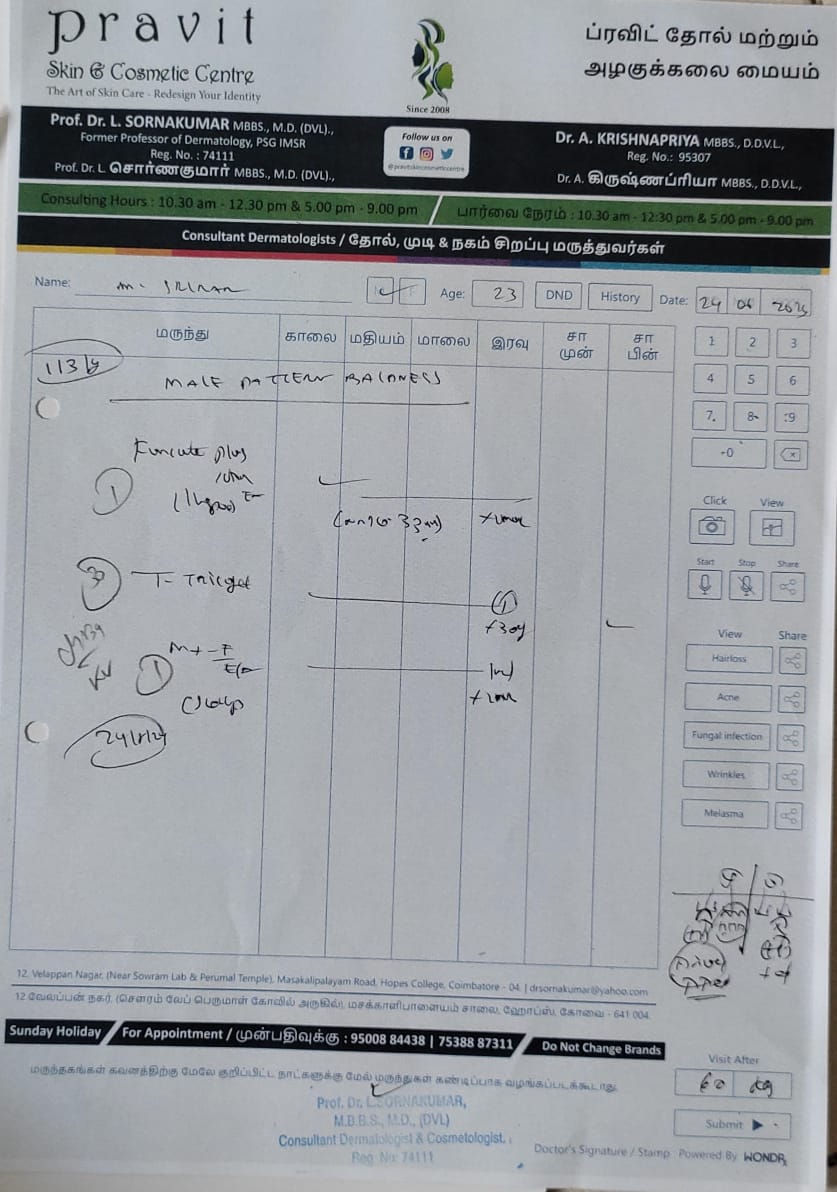 pravit
Skin & Cosmetic Centre
The Art of Skin Care - Redesign Your Identity
Since 2008
ப்ரவிட் தோல் மற்றும்
அழகுக்கலை மையம்
Prof. Dr. L. SORNAKUMAR MBBS., M.D. (DVL).,
Former Professor of Dermatology, PSG IMSR
Reg. No. : 74111
Prof. Dr. L. சொர்ணகுமார் MBBS., M.D. (DVL).,
Follow us on
@pravitskincosmeticcentre
Dr. A. KRISHNAPRIYA MBBS., D.D.V.L.,
Reg. No.: 95307
Dr. A. கிருஷ்ணப்ரியா MBBS., D.D.V.L.,
Consulting Hours : 10.30 am - 12.30 pm & 5.00 pm - 9.00 pm / பார்வை நேரம் : 10.30 am - 12:30 pm & 5.00 pm - 9.00 pm
Consultant Dermatologists / தோல், முடி & நகம் சிறப்பு மருத்துவர்கள்
Name: Age: 23 DND History Date: 24 06
மருந்து காலை மதியம் மாலை இரவு சா முன் சா பின்
MALE PATTERN BALDNESS
1 2 3
4 5 6
7. 8 9
0
Click View
Start Stop Share
View Share
Hairloss
Acne
Fungal infection
Wrinkles
Melasma
12, Velappan Nagar, (Near Sowram Lab & Perumal Temple), Masakalipalayam Road, Hopes College, Coimbatore - 04. | drsornakumar@yahoo.com
12 வேலப்பன் நகர், (சௌரம் லேப் பெருமாள் கோவில் அருகில்), மசக்காளிபாளையம் சாலை, ஹோப்ஸ், கோவை - 641 004.
Sunday Holiday / For Appointment / முன்பதிவுக்கு : 95008 84438 | 75388 87311 / Do Not Change Brands
மருந்தகங்கள் கவனத்திற்கு மேலே குறிப்பிட்ட நாட்களுக்கு மேல் மருந்துகள் கண்டிப்பாக வழங்கப்படக்கூடாது.
Visit After
60
Submit
Prof. Dr. L.SORNAKUMAR,
M.B.B.S., M.D., (DVL)
Consultant Dermatologist & Cosmetologist.
Reg. No: 74111
Doctor's Signature / Stamp Powered By WONDRx